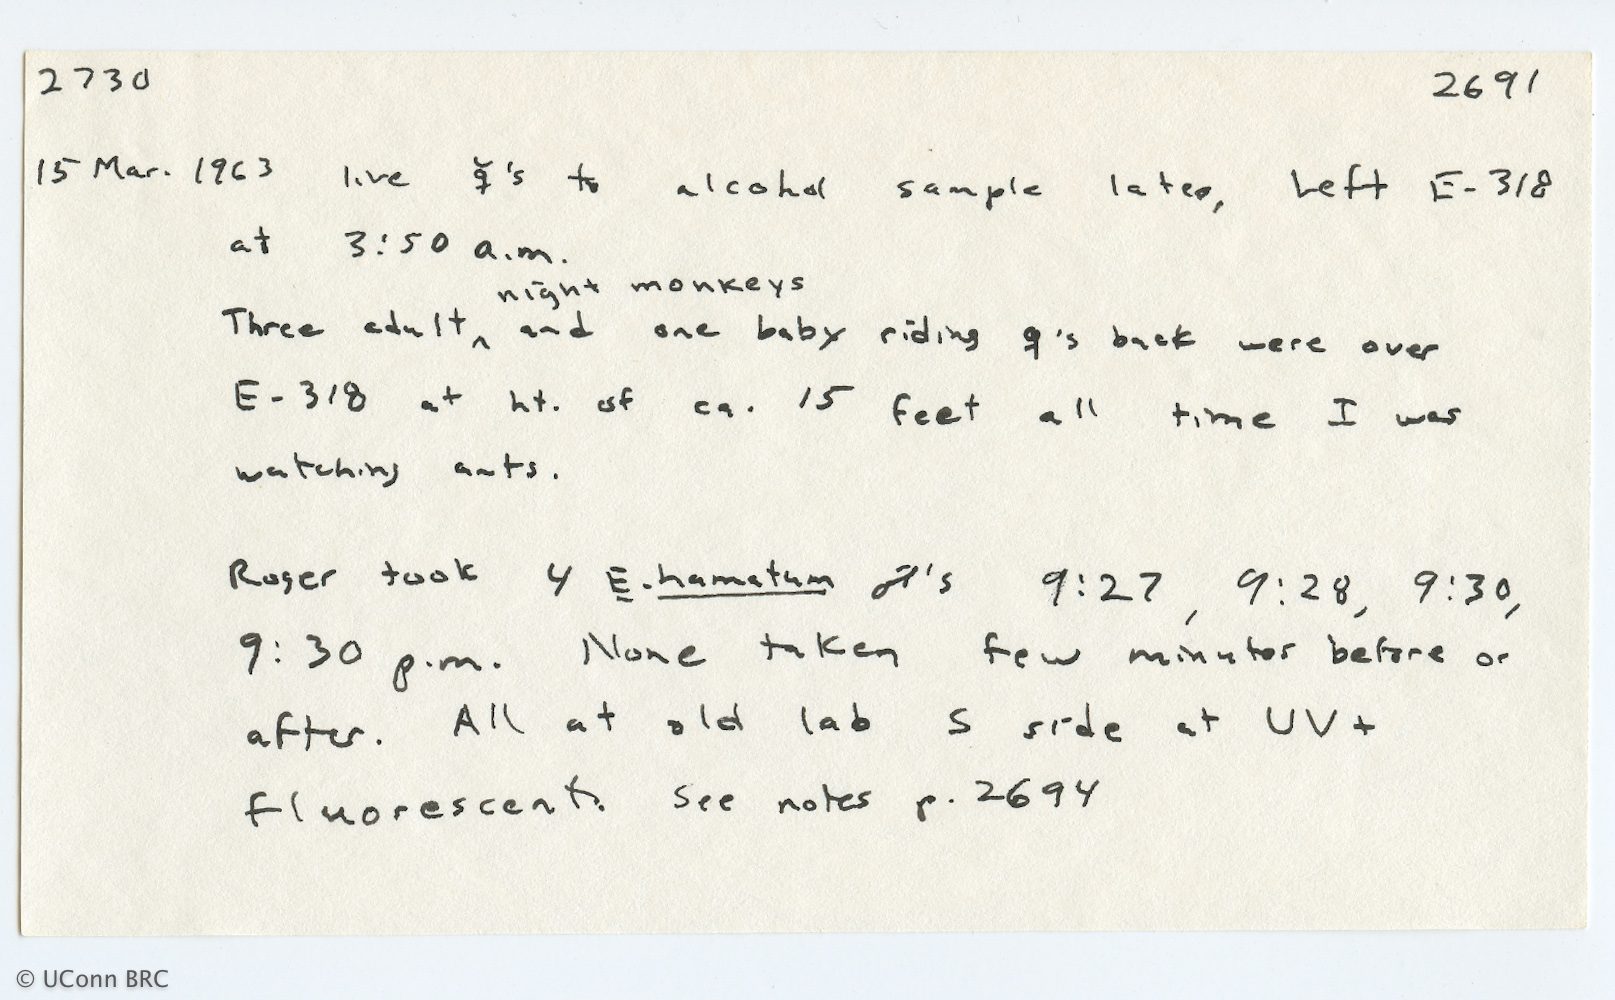 2730 2691
15 Mar. 1963 live ☿'s to alcohol sample later, Left E-318
at 3:50 a.m.
night monkeys
Three adult ^ and one baby riding ♀'s back were over
E-318 at ht. of ca. 15 feet all time I was
watching ants.
Roger took 4 E. hamatum ♂'s 9:27, 9:28, 9:30,
9:30 p.m. None taken few minutes before or
after. All at old lab S side at UV +
fluorescent. See notes p. 2694
© UConn BRC